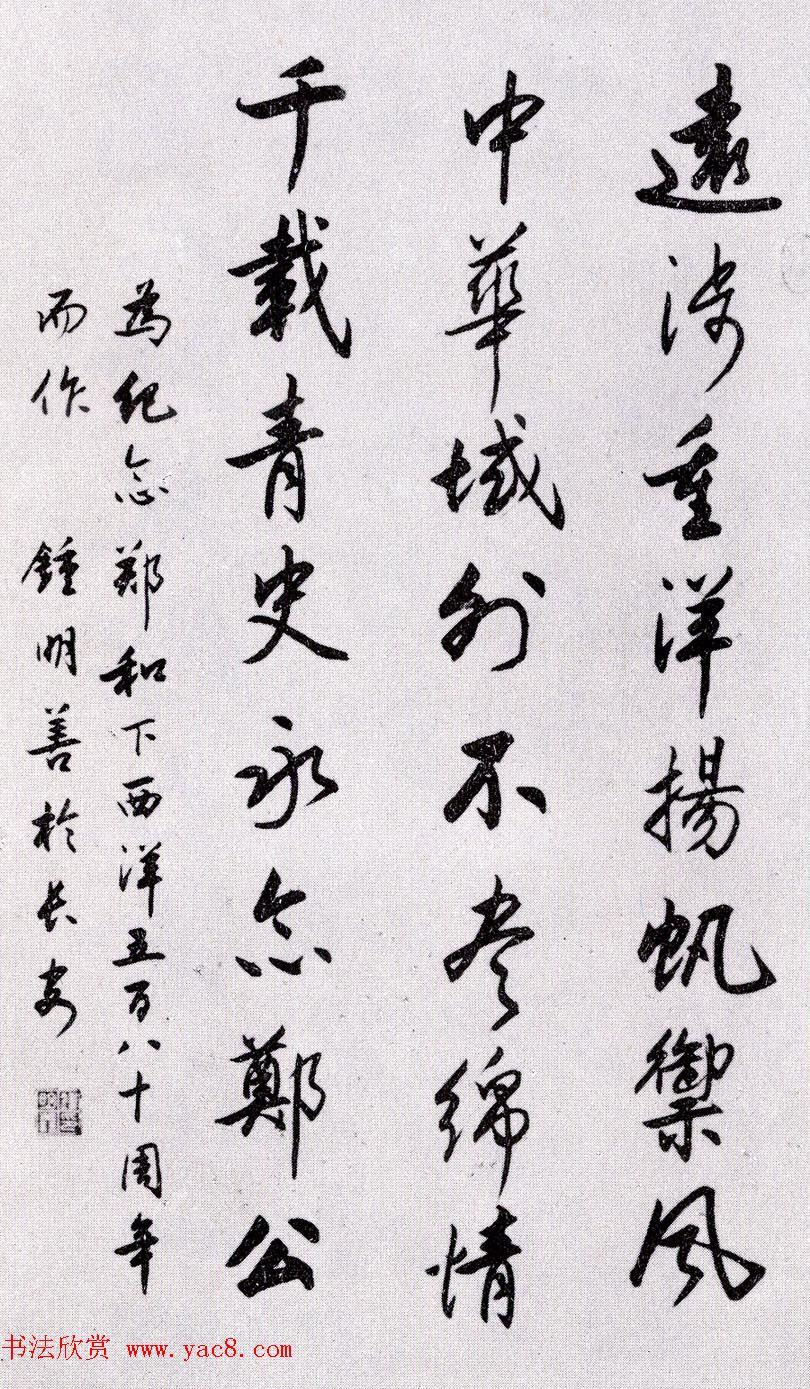 遠涉重洋揚帆禦風
中華域外不尽綿情
千載青史永念鄭公
為纪念郑和下西洋五百八十周年
而作 鍾明善於长安
书法欣赏 www.yac8.com